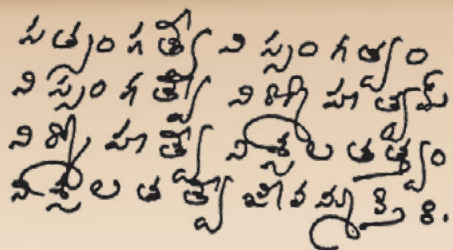 సత్సంగత్వే నిస్సంగత్వం
నిస్సంగత్వే నిర్మోహత్వమ్
నిర్మోహత్వే నిశ్చలతత్త్వం
నిశ్చలతత్త్వే జీవన్ముక్తిః.